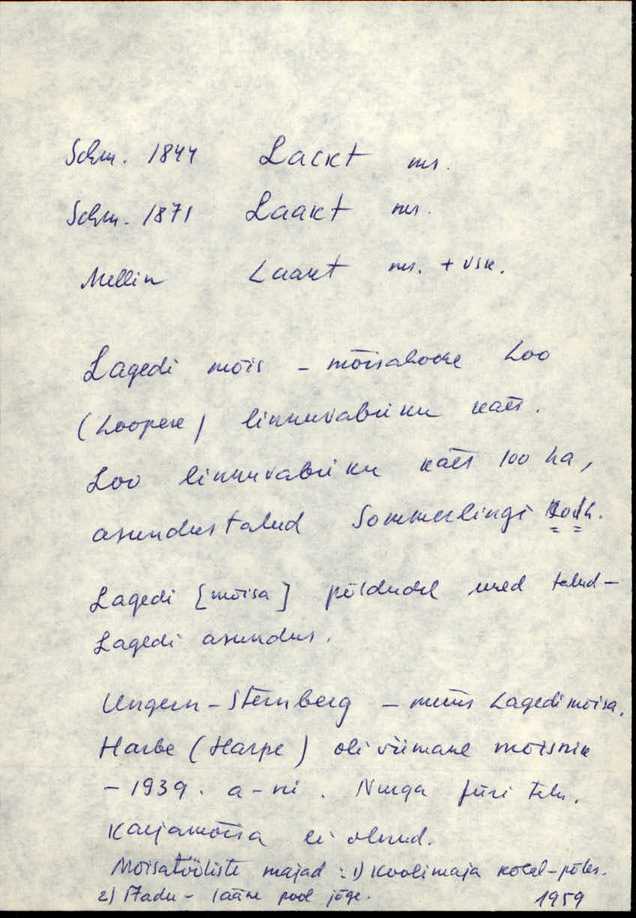 Schm. 1844 Lackt ms.
Schm. 1871 Laakt ms.
Mellin Laakt ms. + vsk.
Lagedi mõis – mõisahoone Loo
(Loopere) linnuvabriku käes.
Loo linnuvabriku käes 100 ha,
asundustalud Sommerlingi
Lagedi [mõisa] põldudel uued talud –
Lagedi asundus.
Ungern-Sternberg – müüs Lagedi mõisa.
Harbe (Harpe) oli viimane mõisnik
– 1939. a-ni. Nurga Jüri talu.
Karjamõisa ei olnud.
Mõisatööliste majad: 1) Koolimaja kotal-põles.
2) Stadu – lääne pool jõge. 1959